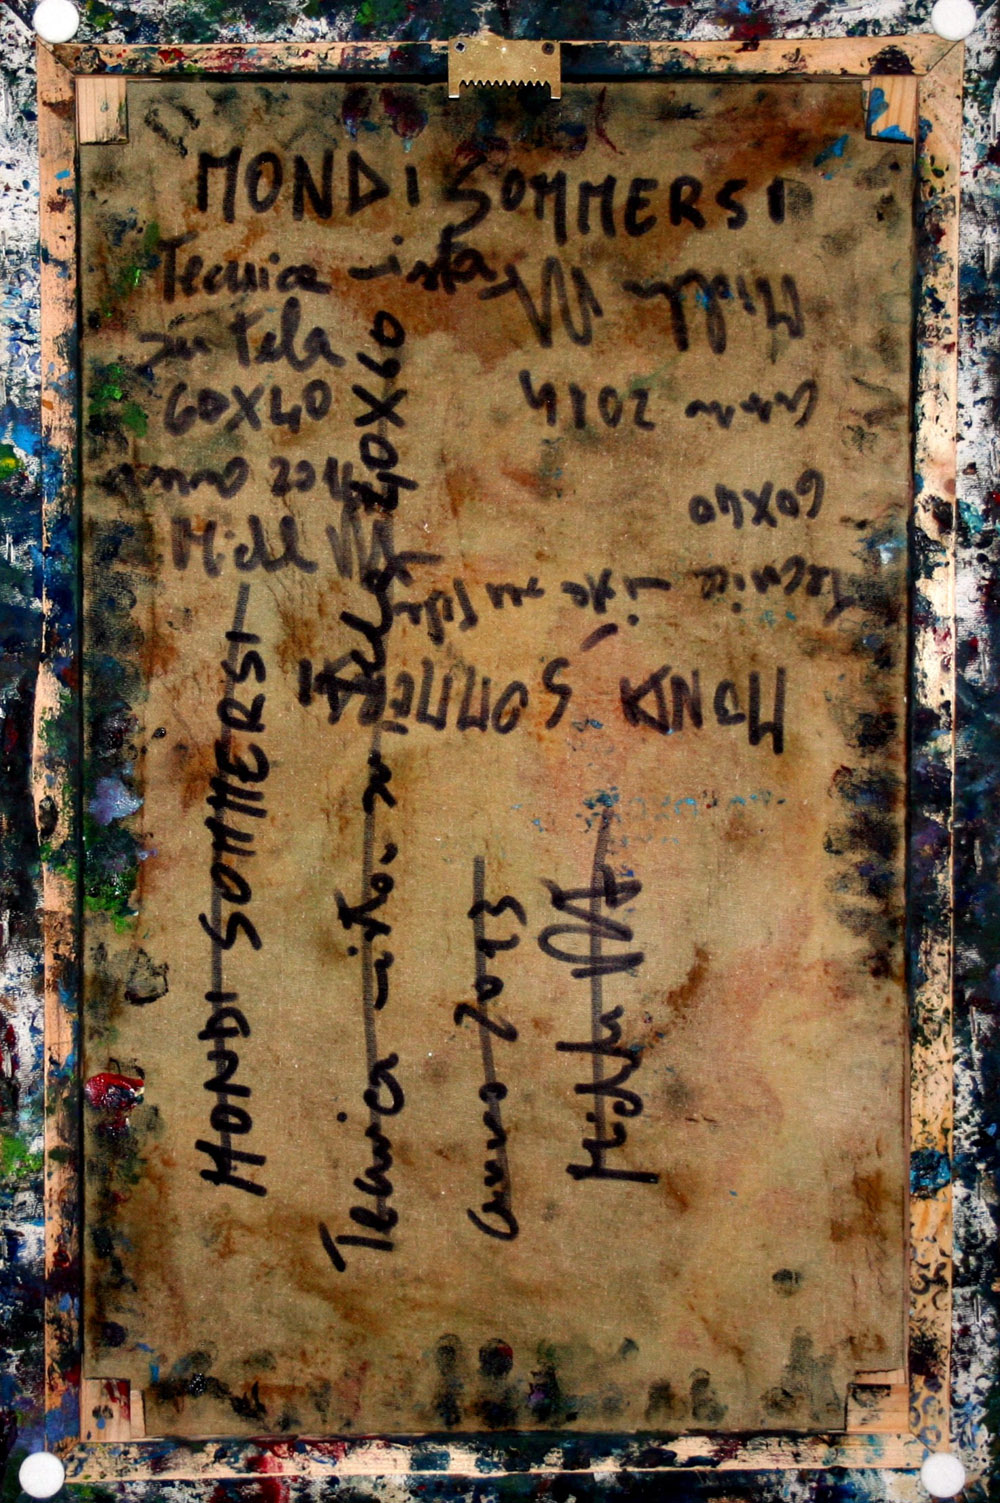 MONDI SOMMERSI
Tecnica mista
su tela
60X40
anno 2014
MONDI SOMMERSI
Tecnica mista su tela 40X60
anno 2013
anno 2014
60X40
Tecnica mista su tela
MONDI SOMMERSI